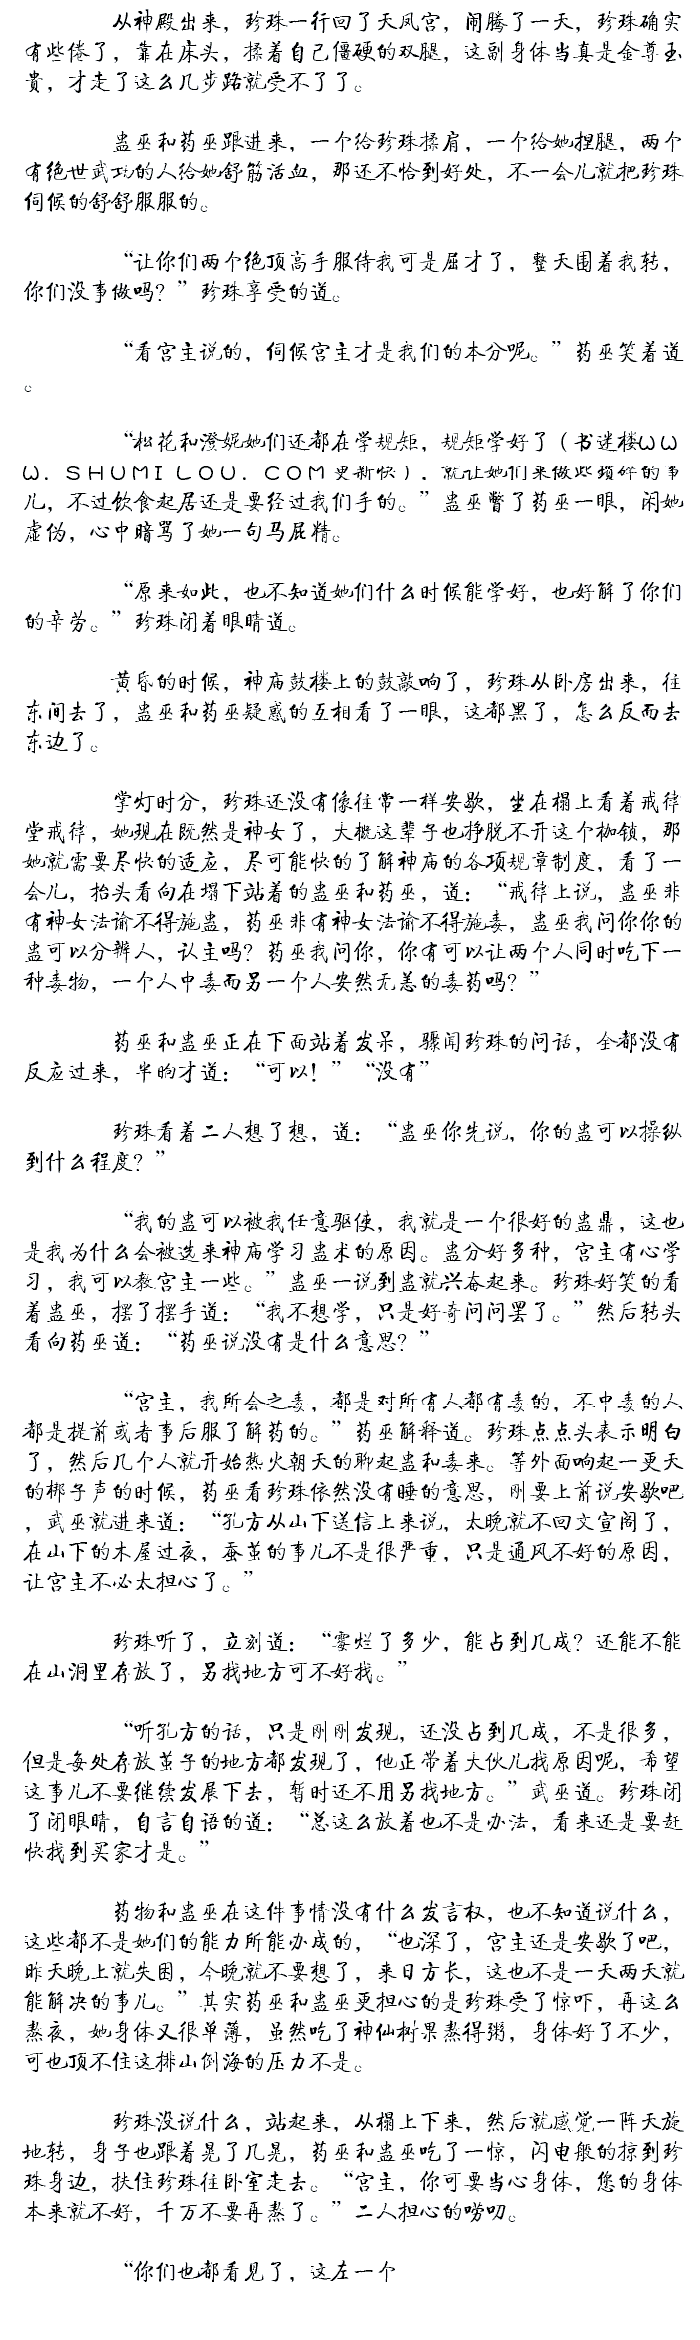 从神殿出来，珍珠一行回了天凤宫，闹腾了一天，珍珠确实
有些倦了，靠在床头，揉着自己僵硬的双腿，这副身体当真是金尊玉
贵，才走了这么几步路就受不了了。
蛊巫和药巫跟进来，一个给珍珠揉肩，一个给她捏腿，两个
有绝世武功的人给她舒筋活血，那还不恰到好处，不一会儿就把珍珠
伺候的舒舒服服的。
“让你们两个绝顶高手服侍我可是屈才了，整天围着我转，
你们没事做吗？”珍珠享受的道。
“看宫主说的，伺候宫主才是我们的本分呢。”药巫笑着道
。
“松花和澄妮她们还都在学规矩，规矩学好了（书迷楼ＷＷ
Ｗ．ＳＨＵＭＩＬＯＵ．ＣＯＭ更新快），就让她们来做些琐碎的事
儿，不过饮食起居还是要经过我们手的。”蛊巫瞥了药巫一眼，闲她
虚伪，心中暗骂了她一句马屁精。
“原来如此，也不知道她们什么时候能学好，也好解了你们
的辛劳。”珍珠闭着眼睛道。
黄昏的时候，神庙鼓楼上的鼓敲响了，珍珠从卧房出来，往
东间去了，蛊巫和药巫疑惑的互相看了一眼，这都黑了，怎么反而去
东边了。
掌灯时分，珍珠还没有像往常一样安歇，坐在榻上看着戒律
堂戒律，她现在既然是神女了，大概这辈子也挣脱不开这个枷锁，那
她就需要尽快的适应，尽可能快的了解神庙的各项规章制度，看了一
会儿，抬头看向在塌下站着的蛊巫和药巫，道：“戒律上说，蛊巫非
有神女法谕不得施蛊，药巫非有神女法谕不得施毒，蛊巫我问你你的
蛊可以分辨人，认主吗？药巫我问你，你有可以让两个人同时吃下一
种毒物，一个人中毒而另一个人安然无恙的毒药吗？”
药巫和蛊巫正在下面站着发呆，骤闻珍珠的问话，全都没有
反应过来，半晌才道：“可以！”“没有”
珍珠看着二人想了想，道：“蛊巫你先说，你的蛊可以操纵
到什么程度？”
“我的蛊可以被我任意驱使，我就是一个很好的蛊鼎，这也
是我为什么会被选来神庙学习蛊术的原因。蛊分好多种，宫主有心学
习，我可以教宫主一些。”蛊巫一说到蛊就兴奋起来。珍珠好笑的看
着蛊巫，摆了摆手道：“我不想学，只是好奇问问罢了。”然后转头
看向药巫道：“药巫说没有是什么意思？”
“宫主，我所会之毒，都是对所有人都有毒的，不中毒的人
都是提前或者事后服了解药的。”药巫解释道。珍珠点点头表示明白
了，然后几个人就开始热火朝天的聊起蛊和毒来。等外面响起一更天
的梆子声的时候，药巫看珍珠依然没有睡的意思，刚要上前说安歇吧
，武巫就进来道：“孔方从山下送信上来说，太晚就不回文宣阁了，
在山下的木屋过夜，蚕茧的事儿不是很严重，只是通风不好的原因，
让宫主不必太担心了。”
珍珠听了，立刻道：“霉烂了多少，能占到几成？还能不能
在山洞里存放了，另找地方可不好找。”
“听孔方的话，只是刚刚发现，还没占到几成，不是很多，
但是每处存放茧子的地方都发现了，他正带着大伙儿找原因呢，希望
这事儿不要继续发展下去，暂时还不用另找地方。”武巫道。珍珠闭
了闭眼睛，自言自语的道：“总这么放着也不是办法，看来还是要赶
快找到买家才是。”
药物和蛊巫在这件事情没有什么发言权，也不知道说什么，
这些都不是她们的能力所能办成的，“也深了，宫主还是安歇了吧，
昨天晚上就失困，今晚就不要想了，来日方长，这也不是一天两天就
能解决的事儿。”其实药巫和蛊巫更担心的是珍珠受了惊吓，再这么
熬夜，她身体又很单薄，虽然吃了神仙树果熬得粥，身体好了不少，
可也顶不住这排山倒海的压力不是。
珍珠没说什么，站起来，从榻上下来，然后就感觉一阵天旋
地转，身子也跟着晃了几晃，药巫和蛊巫吃了一惊，闪电般的掠到珍
珠身边，扶住珍珠往卧室走去。“宫主，你可要当心身体，您的身体
本来就不好，千万不要再熬了。”二人担心的唠叨。
“你们也都看见了，这左一个